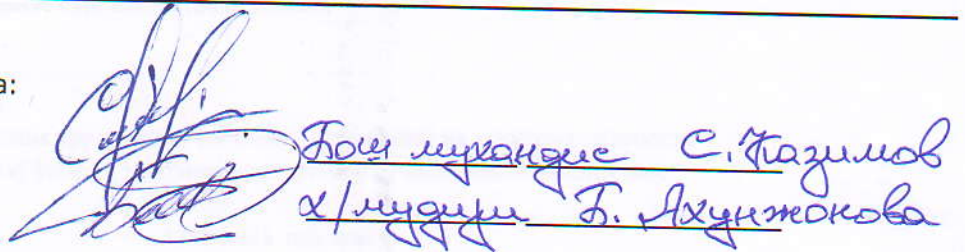 а:
Бош мухандис С. Казимов
х/мудири Б. Ахунжонова